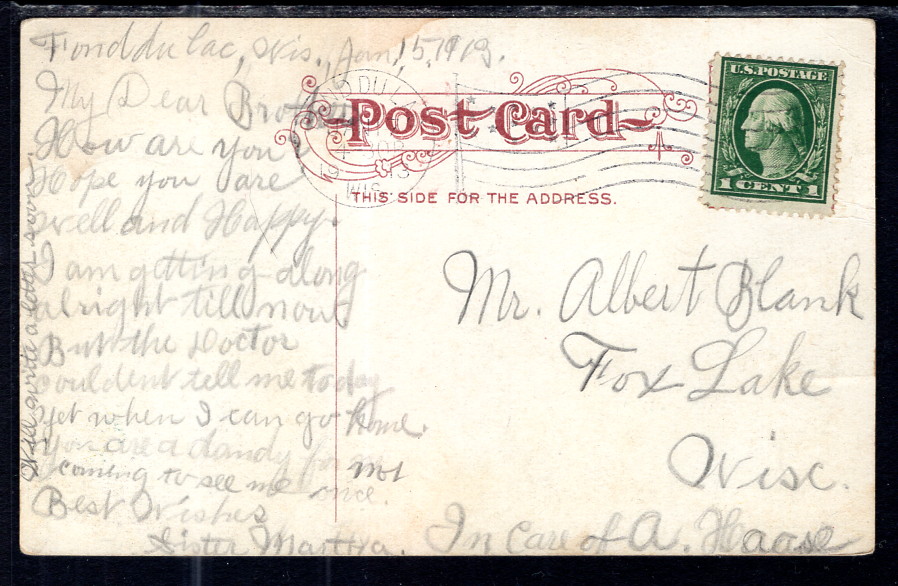 Fond du Lac, Wis., Jan, 15, 1913.
My Dear Brother
How are you
Hope you are
well and Happy.
I am getting along
alright till now
But the Doctor
couldent tell me today
yet when I can go home.
You are a dandy for not
coming to see me once.
Best Wishes
Sister Martha.
Will write a letter soon.
Post Card
THIS SIDE FOR THE ADDRESS.
FOND DU LAC
WIS
U.S. POSTAGE
1 CENT 1
Mr. Albert Blank
Fox Lake
Wisc.
In Care of A. Haase